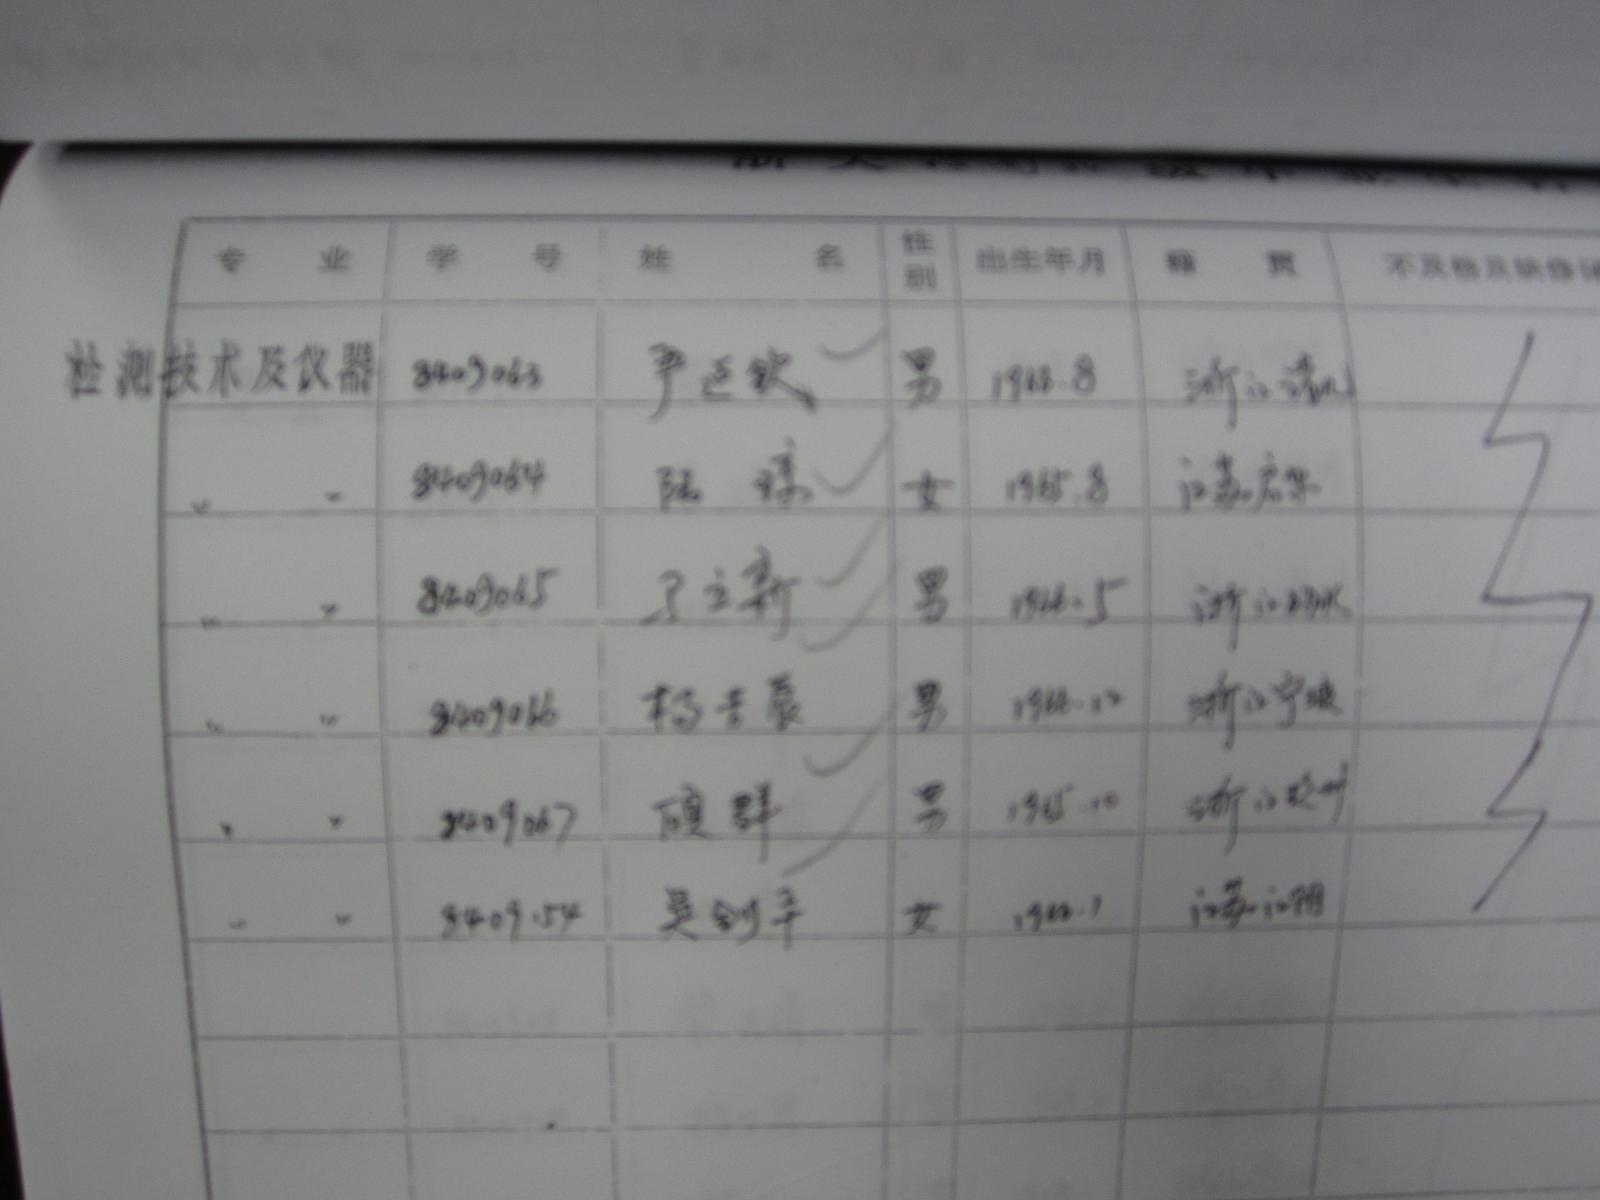 专 业 学 号 姓 名 性别 出生年月 籍 贯 不及格及缺修课
检测技术及仪器 8409063 严 钦 男 1966.8 浙江诸暨
〃 〃 8409064 陆 女 1965.8 江苏启东
〃 〃 8409065 立新 男 1966.5 浙江丽水
〃 〃 8409066 杨 辰 男 1966.12 浙江宁波
〃 〃 8409067 顾群 男 1965.10 浙江
〃 〃 8409.54 吴剑平 女 1966.1 江苏江阴